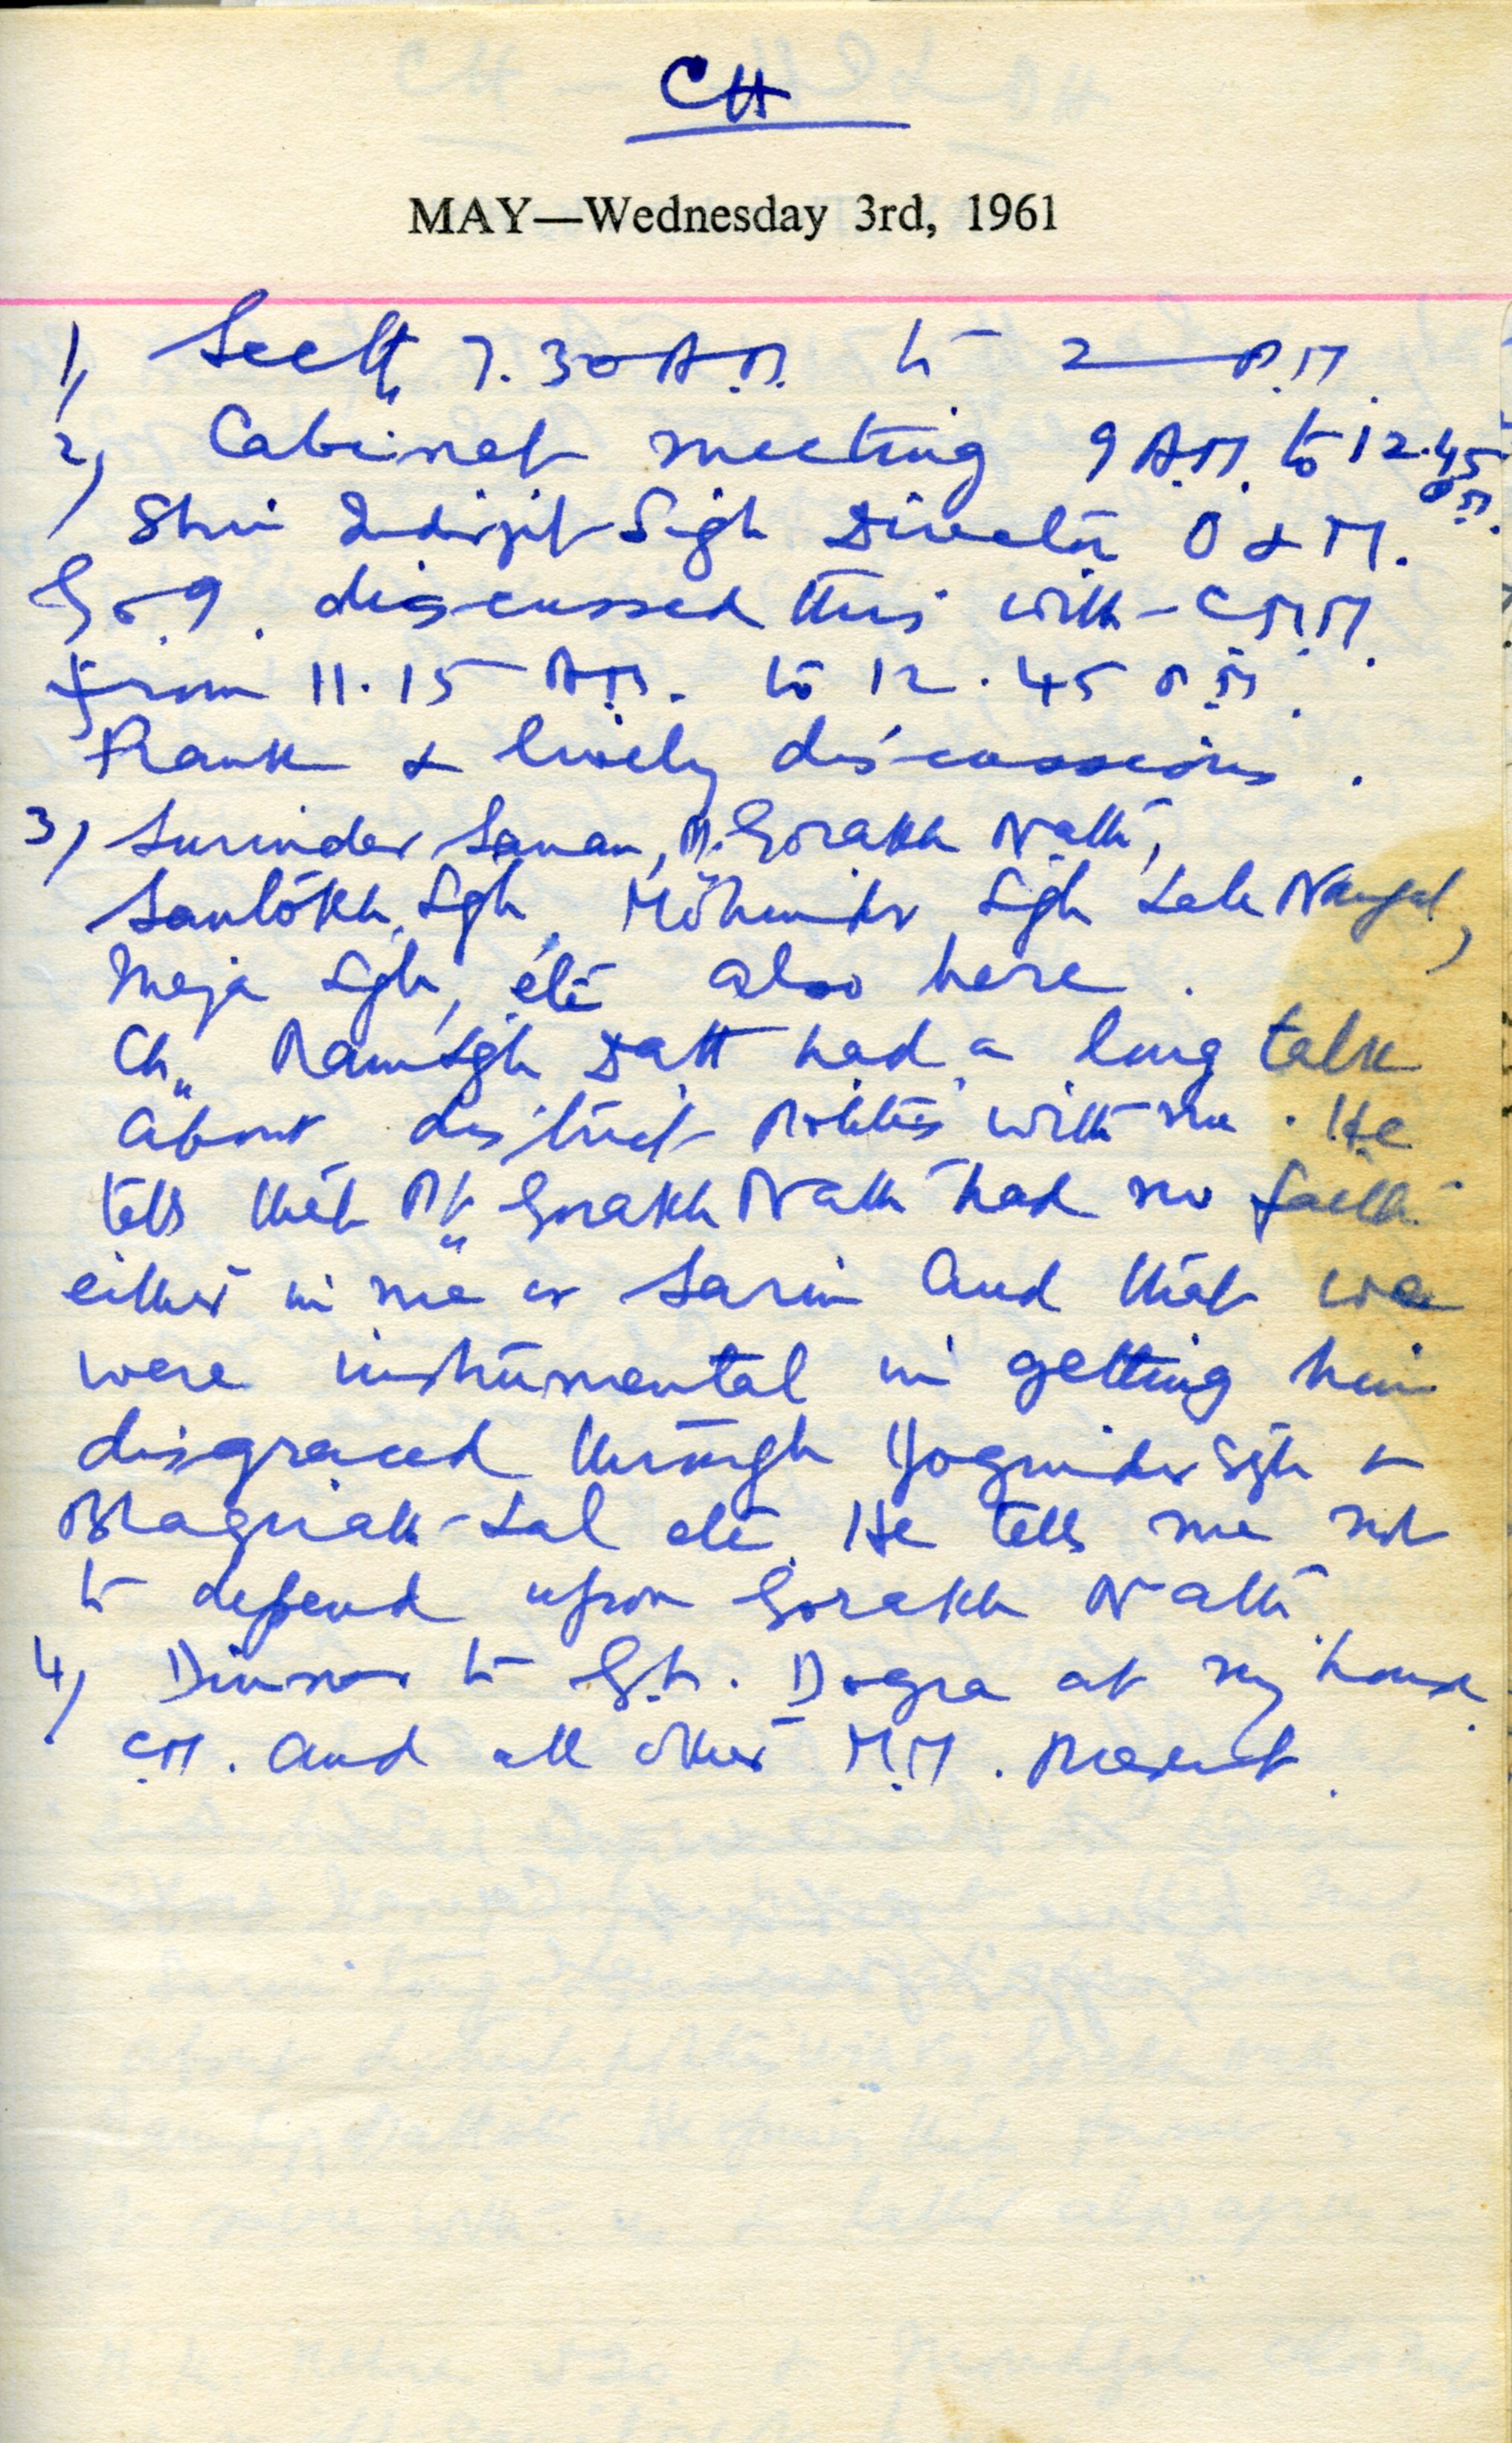 CH
MAY—Wednesday 3rd, 1961
1, Sectt, 7.30 A.M. to 2 P.M.
2, Cabinet meeting 9 A.M. to 12.45 P.M.
Shri Indirjit Sigh Director O & M.
G o I. discussed this with - C M.M.
from 11.15 A.M. to 12.45 P.M.
Frank & lively discussions.
3, Surinder Sanan, P. Gorakh Nath,
Santokh Sgh, Mohinder Sgh Nangal,
Meja Sgh, etc also here.
Ch. Ram Sgh Datt had a long talk
about district Politics with me. He
tells that Pt. Gorakh Nath had no faith
either in me or Sarin and that we
were instrumental in getting him
disgraced through Yoginder Sgh &
Bhaginath Lal etc. He tells me not
to depend upon Gorakh Nath
4, Dinner to G.L. Dogra at my house.
C.M. and all other M.M. Present.